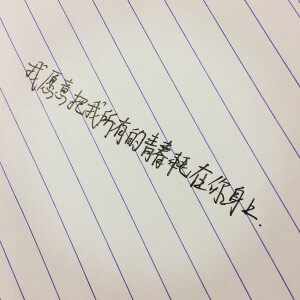 我愿意把我所有的青春耗在你身上.